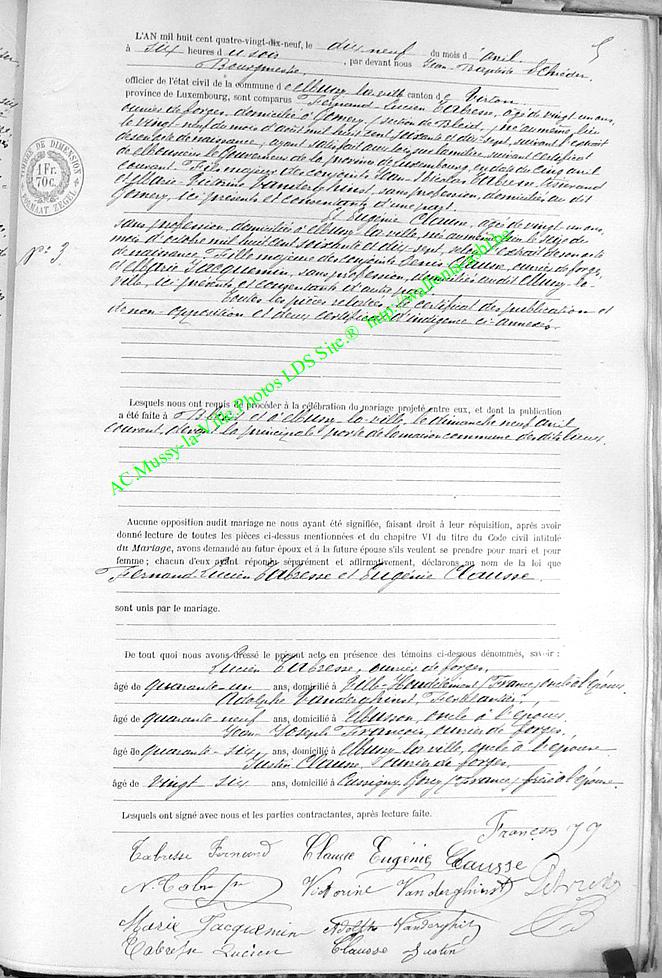 L'AN mil huit cent quatre-vingt-dix-neuf, le dix neuf du mois d'avril
5
à six heures du soir, par devant nous Jean-Baptiste Schréder
Bourgmestre
officier de l'état civil de la commune de Mussy-la-ville canton de Virton,
province de Luxembourg, sont comparus Fernand Lucien Tabresse, âgé de vingt un ans,
ouvrier de forges, domicilié à Gomery, section de Bleid, né au même lieu
le vingt neuf de mois d'août mil huit cent soixante et dix-sept, suivant l'extrait
de acte de naissance, ayant satisfait aux lois sur la milice suivant certificat
de Monsieur le Gouverneur de la province de Luxembourg en date du cinq avril
courant. Fils majeur des conjoints Jean-Nicolas Tabresse,
et Marie Victorine Vanderghinst sans profession, domiciliés au dit
Gomery, ici présents et consentants d'une part.
Et Eugénie Clausse, âgée de vingt un ans,
sans profession, domiciliée à Mussy-la-ville, née au même lieu le seize de
mois d'octobre mil huit cent soixante et dix-sept, selon l'extrait de son acte
de naissance. Fille majeure des conjoints Clausse, ouvrier de forges,
et Marie Jacquemin, sans profession, domiciliés audit Mussy-la-
ville, ici présents et consentants d'autre part.
Toutes les pièces relatées, le certificat des publication et
de non-opposition et deux certificats d'indigence ci-annexés.
TIMBRE DE DIMENSION
1 Fr.
70 c.
FORMAAT ZEGEL
N° 9
AC.Mussy-la-Ville Photos LDS Site.® http://wallonia-asbl.be
Lesquels nous ont requis de procéder à la célébration du mariage projeté entre eux, et dont la publication
a été faite à Bleid et à Mussy-la-ville, le dimanche neuf avril
courant, devant la principale porte de la maison commune des dits lieux.
Aucune opposition audit mariage ne nous ayant été signifiée, faisant droit à leur réquisition, après avoir
donné lecture de toutes les pièces ci-dessus mentionnées et du chapitre VI du titre du Code civil intitulé
du Mariage, avons demandé au futur époux et à la future épouse s'ils veulent se prendre pour mari et pour
femme ; chacun d'eux ayant répondu séparément et affirmativement, déclarons au nom de la loi que
Fernand Lucien Tabresse et Eugénie Clausse.
sont unis par le mariage.
De tout quoi nous avons dressé le présent acte en présence des témoins ci-dessous dénommés, savoir :
Lucien Tabresse, ouvrier de forges,
âgé de quarante-un ans, domicilié à Ville-Houdlémont (France), oncle à l'époux.
Adolphe Vanderghinst, Ferblantier,
âgé de quarante neuf ans, domicilié à Musson, oncle à l'époux.
Jean-Joseph François, ouvrier de forges,
âgé de quarante-six ans, domicilié à Mussy-la-ville, oncle à l'épouse
Justin Clausse, ouvrier de forges,
âgé de vingt six ans, domicilié à Cussigny-Gorcy (France) frère à l'épouse.
Lesquels ont signé avec nous et les parties contractantes, après lecture faite.
François JJ
Tabresse Fernand Clausse Eugénie Clausse
N. Tabresse Victorine Vanderghinst
Marie Jacquemin Adolphe Vanderghinst
Tabresse Lucien Clausse Justin